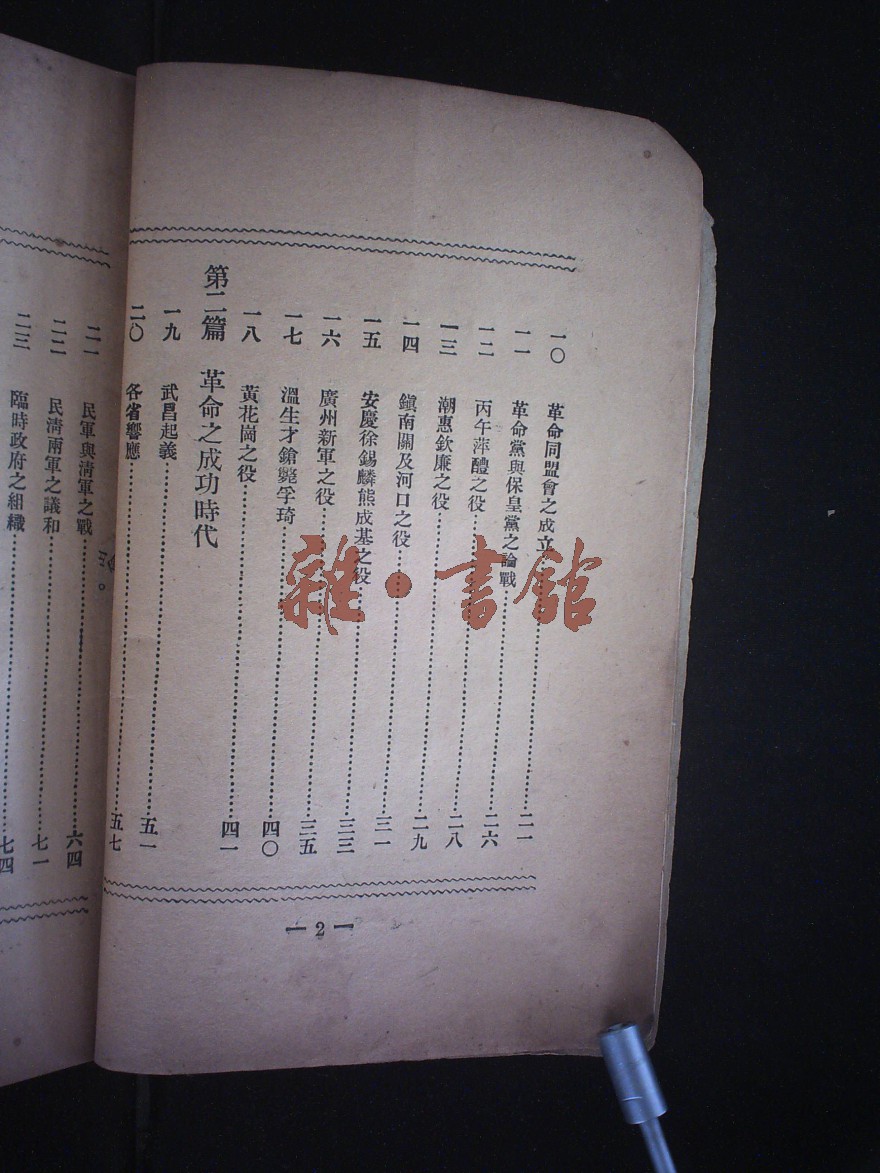 一〇 革命同盟會之成立……二一
一一 革命黨與保皇黨之論戰……二六
一二 丙午萍醴之役……二八
一三 潮惠欽廉之役……二九
一四 鎮南關及河口之役……三一
一五 安慶徐錫麟熊成基之役……三三
一六 廣州新軍之役……三五
一七 溫生才鎗斃孚琦……四〇
一八 黃花崗之役……四一
第二篇 革命之成功時代
一九 武昌起義……五一
二〇 各省響應……五七
— 2 —
二一 民軍與清軍之戰……六四
二二 民清兩軍之議和……七一
二三 臨時政府之組織……七四
雜·書館